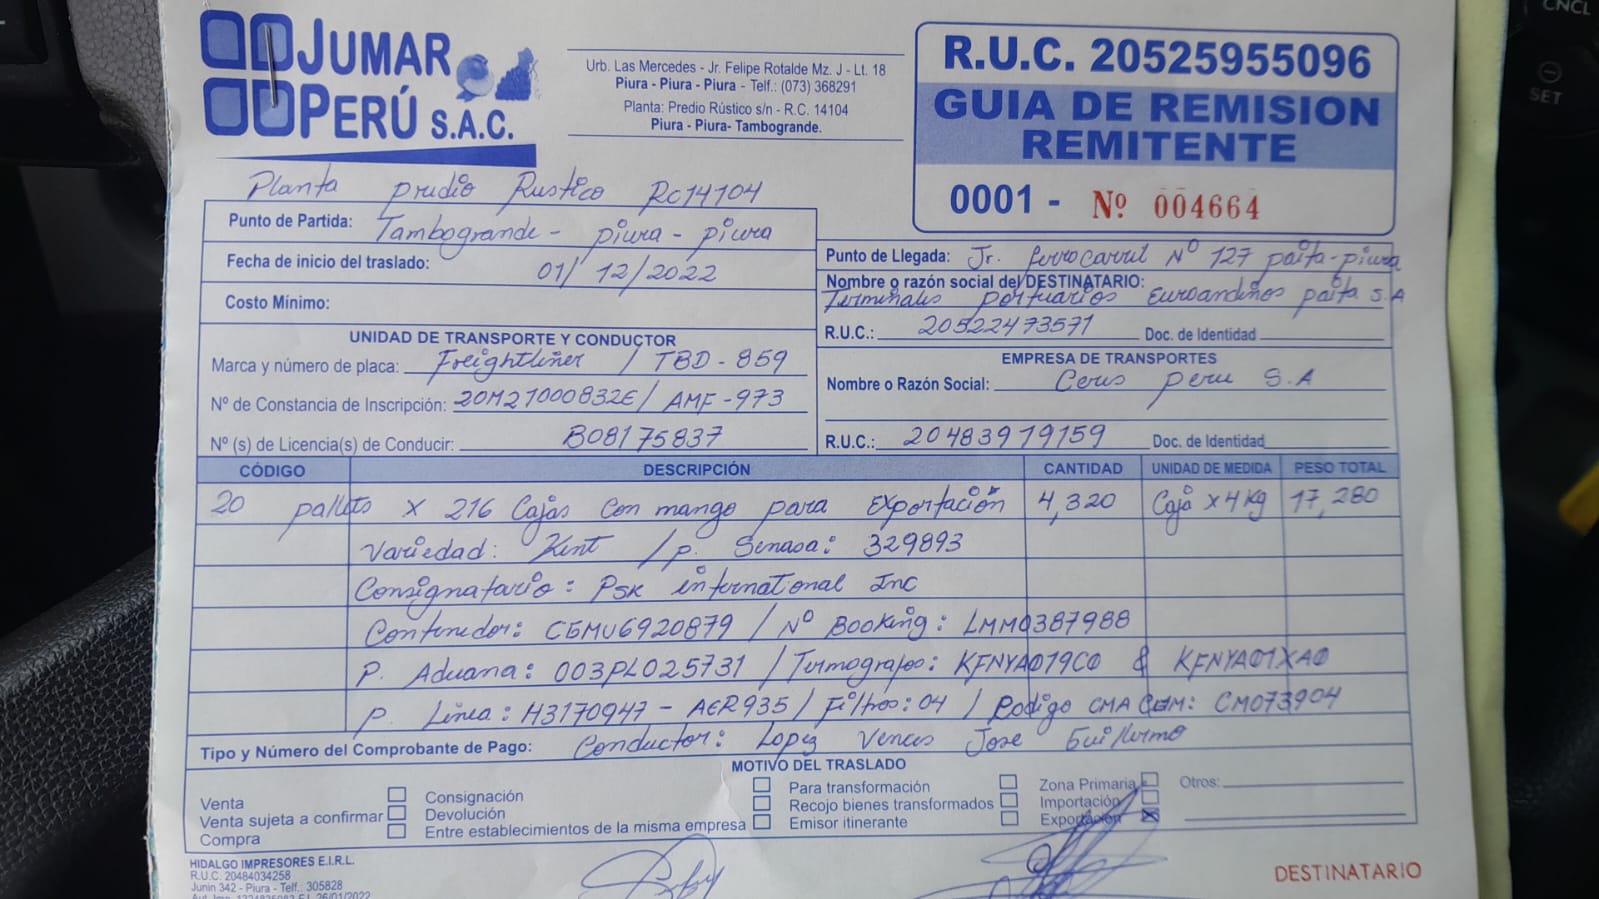 JUMAR
PERÚ S.A.C.
Urb. Las Mercedes - Jr. Felipe Rotalde Mz. J - Lt. 18
Piura - Piura - Piura - Telf.: (073) 368291
Planta: Predio Rústico s/n - R.C. 14104
Piura - Piura- Tambogrande.
R.U.C. 20525955096
GUIA DE REMISION
REMITENTE
0001 - Nº 004664
Planta predio Rustico RC14104
Punto de Partida: Tambogrande - piura - piura
Fecha de inicio del traslado: 01/12/2022
Costo Mínimo:
Punto de Llegada: Jr. ferrocarril Nº 127 paita-piura
Nombre o razón social del DESTINATARIO:
Terminales portuarios Euroandinos paita S.A
R.U.C.: 20522473571 Doc. de Identidad
UNIDAD DE TRANSPORTE Y CONDUCTOR
Marca y número de placa: Freightliner / TBD - 859
Nº de Constancia de Inscripción: 20M21000832E / AMF-973
Nº (s) de Licencia(s) de Conducir: B08175837
EMPRESA DE TRANSPORTES
Nombre o Razón Social: Ceus peru S.A
R.U.C.: 20483979159 Doc. de Identidad
CÓDIGO DESCRIPCIÓN CANTIDAD UNIDAD DE MEDIDA PESO TOTAL
20 pallets x 216 Cajas con mango para Exportación 4,320 Caja x 4 kg 17,280
Variedad: Kent / p. Senasa: 329893
Consignatario: PSK international Inc
Contenedor: CGMU6920879 / Nº Booking: LMM0387988
P. Aduana: 003PL025731 / Termografos: KFNYA019C0 & KFNYA01XA0
P. Linea: H3170947 - AER935 / Filtros: 04 / Codigo CMA CGM: CM073904
Tipo y Número del Comprobante de Pago: Conductor: Lopez Vences Jose Guillermo
MOTIVO DEL TRASLADO
Venta Consignación Para transformación Zona Primaria Otros:
Venta sujeta a confirmar Devolución Recojo bienes transformados Importación
Compra Entre establecimientos de la misma empresa Emisor itinerante Exportación
HIDALGO IMPRESORES E.I.R.L.
R.U.C. 20484034258
Junin 342 - Piura - Telf.: 305828
DESTINATARIO